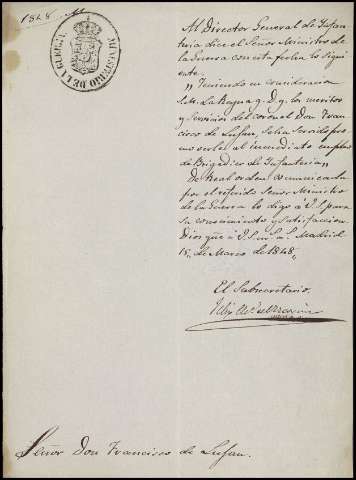 1848
MINISTERIO DE LA GUERRA
Al Director General de Infan
teria dice el Señor Ministro de
la Guerra con esta fecha lo sigui
ente.
"Teniendo en consideracion
S.M. la Reyna q. D. g. los meritos
y servicios del coronel Don Fran
cisco de Lujan, se ha servido pro
moverle al inmediato empleo
de Brigadier de Infanteria"
De Real orden comunicada
por el referido Señor Ministro
de la Guerra lo digo á V.S. para
su conocimiento y satisfaccion
Dios gue á V.S. m. a. Madrid
15 de Marzo de 1848.
El Subsecretario.
Señor Don Francisco de Lujan.